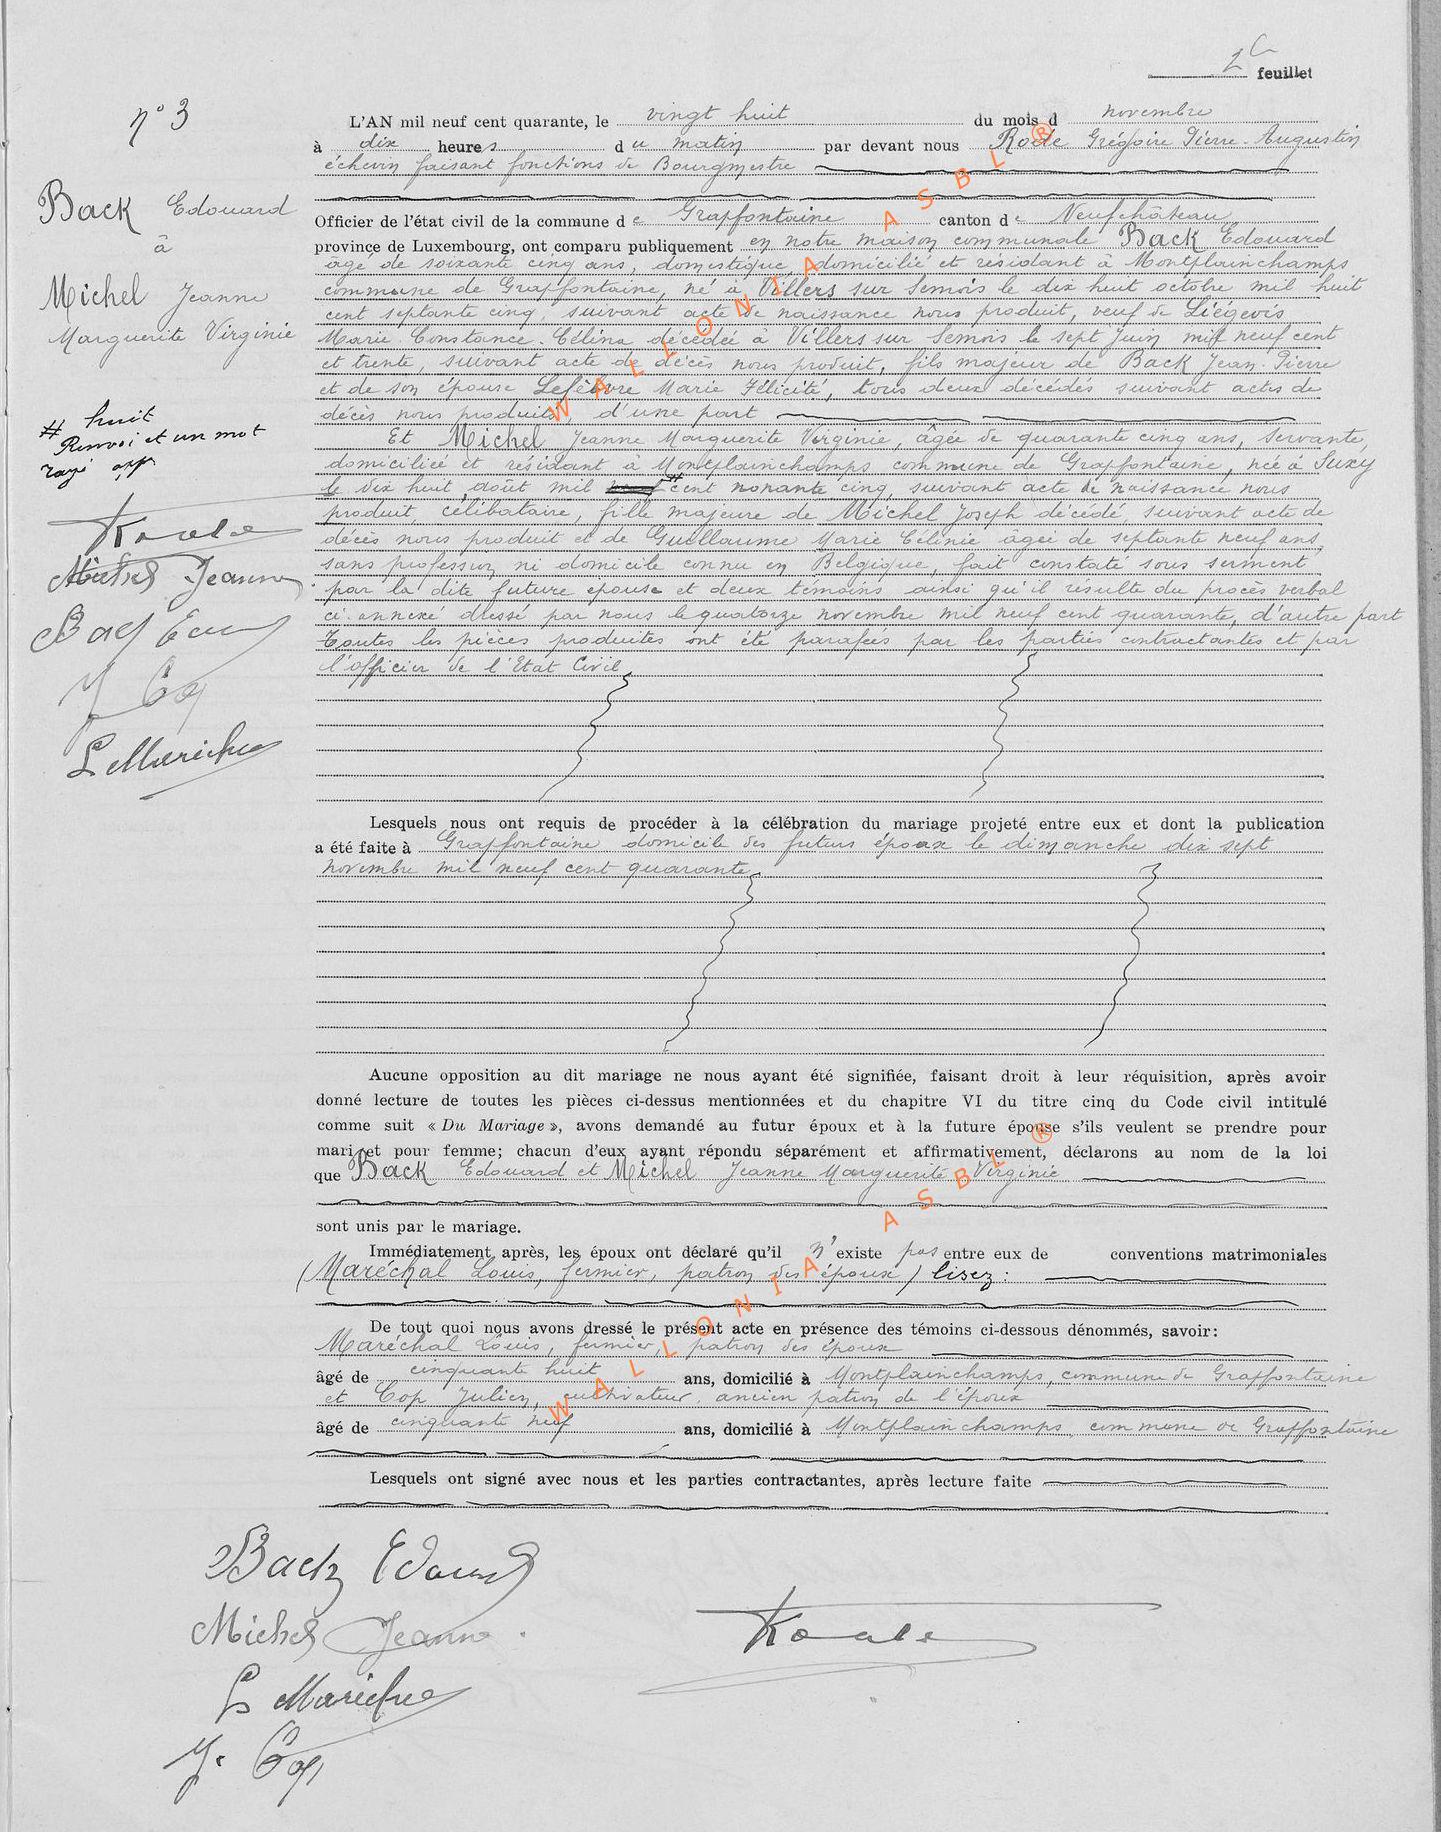 2e feuillet
n° 3
L'AN mil neuf cent quarante, le vingt huit du mois d novembre
à dix heures du matin par devant nous Rode Grégoire Pierre-Augustin
échevin faisant fonctions de Bourgmestre
Officier de l'état civil de la commune de Grapfontaine canton de Neufchâteau
province de Luxembourg, ont comparu publiquement en notre maison communale Back Edouard
âgé de soixante cinq ans, domestique, domicilié et résidant à Montplainchamps
commune de Grapfontaine, né à Villers sur Semois le dix huit octobre mil huit
cent septante cinq, suivant acte de naissance nous produit, veuf de Liégeois
Marie Constance-Célina décédée à Villers sur Semois le sept Juin mil neuf cent
et trente, suivant acte de décès nous produit, fils majeur de Back Jean-Pierre
et de son épouse Lefèbvre Marie Félicité, tous deux décédés suivant actes de
décès nous produits, d'une part
Et Michel Jeanne Marguerite Virginie, âgée de quarante cinq ans, servante,
domiciliée et résidant à Montplainchamps commune de Grapfontaine, née à Suxy
le dix huit août mil # cent nonante cinq, suivant acte de naissance nous
produit, célibataire, fille majeure de Michel Joseph décédé, suivant acte de
décès nous produit et de Guillaume Marie Célinie âgée de septante neuf ans,
sans profession ni domicile connu en Belgique, fait constaté sous serment
par la dite future épouse et deux témoins ainsi qu'il résulte du procès verbal
ci-annexé dressé par nous le quatorze novembre mil neuf cent quarante, d'autre part
Toutes les pièces produites ont été parafées par les parties contractantes et par
l'officier de l'Etat Civil
Back Edouard
à
Michel Jeanne
Marguerite Virginie
# huit
Renvoi et un mot
rayé app
Michel Jeanne
J Cop
L Maréchal
Lesquels nous ont requis de procéder à la célébration du mariage projeté entre eux et dont la publication
a été faite à Grapfontaine domicile des futurs époux le dimanche dix sept
novembre mil neuf cent quarante
Aucune opposition au dit mariage ne nous ayant été signifiée, faisant droit à leur réquisition, après avoir
donné lecture de toutes les pièces ci-dessus mentionnées et du chapitre VI du titre cinq du Code civil intitulé
comme suit « Du Mariage », avons demandé au futur époux et à la future épouse s'ils veulent se prendre pour
mari et pour femme; chacun d'eux ayant répondu séparément et affirmativement, déclarons au nom de la loi
que Back Edouard et Michel Jeanne Marguerite Virginie
sont unis par le mariage.
Immédiatement après, les époux ont déclaré qu'il n'existe pas entre eux de conventions matrimoniales
(Maréchal Louis, fermier, patron des époux) lisez:
De tout quoi nous avons dressé le présent acte en présence des témoins ci-dessous dénommés, savoir:
Maréchal Louis, fermier, patron des époux
âgé de cinquante huit ans, domicilié à Montplainchamps, commune de Grapfontaine
et Cop Julien, cultivateur, ancien patron de l'époux
âgé de cinquante neuf ans, domicilié à Montplainchamps commune de Grapfontaine
Lesquels ont signé avec nous et les parties contractantes, après lecture faite
Back Edouard
Michel Jeanne
L Maréchal
J. Cop
WALLONIA ASBL ®
WALLONIA ASBL ®